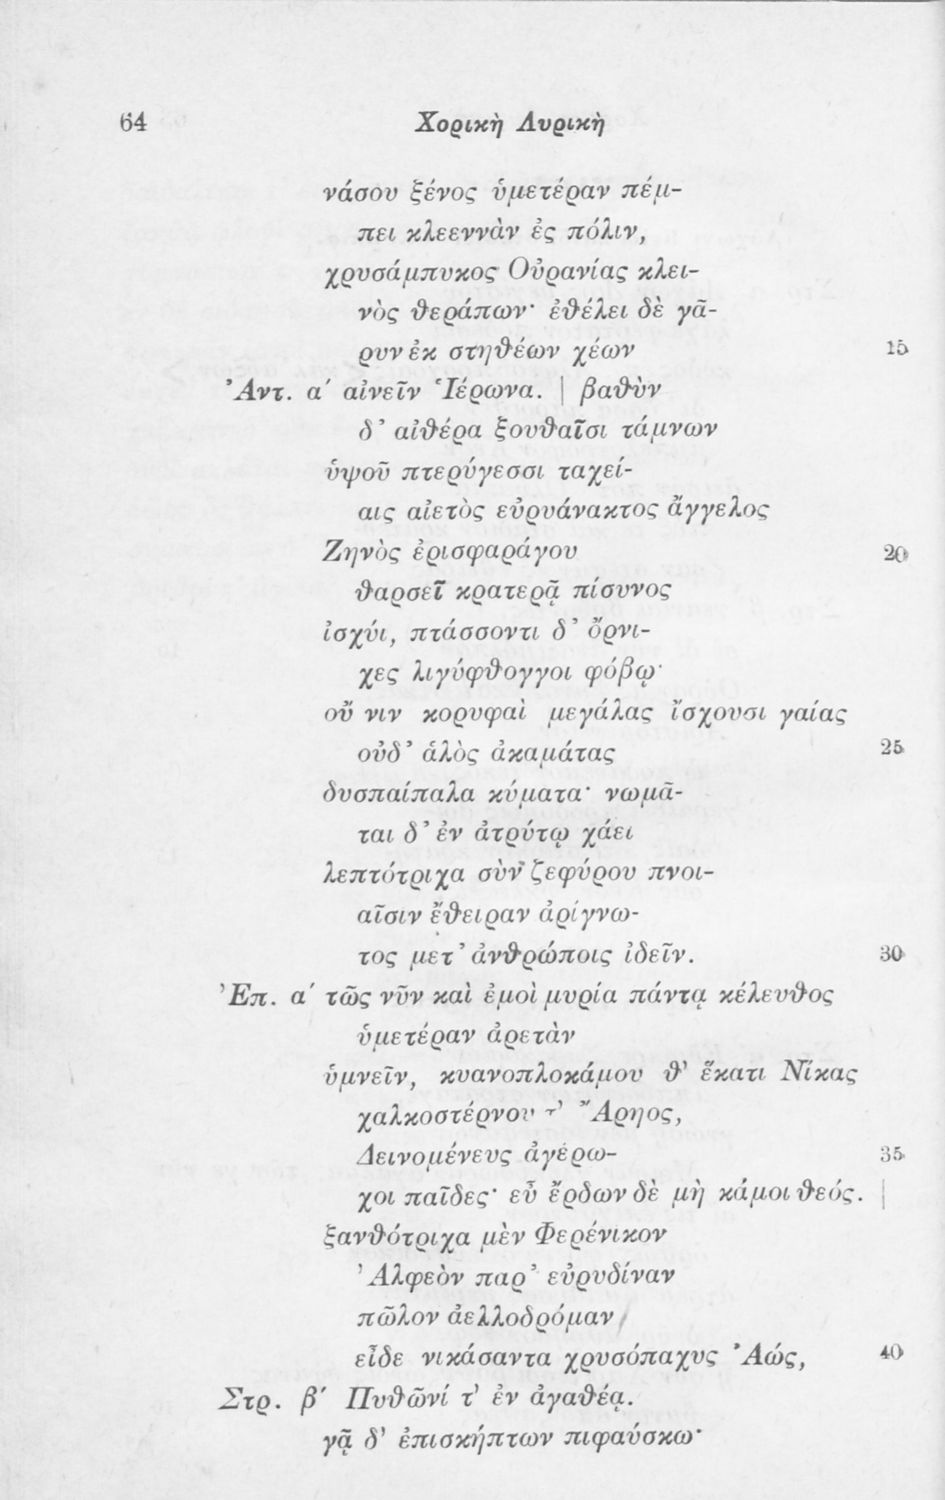 64 Χορικὴ Λυρικὴ
νάσου ξένος ὑμετέραν πέμ-
πει κλεεννὰν ἐς πόλιν,
χρυσάμπυκος Οὐρανίας κλει-
νὸς θεράπων· ἐθέλει δὲ γᾶ-
ρυν ἐκ στηθέων χέων 15
Ἀντ. α΄ αἰνεῖν Ἱέρωνα. | βαθὺν
δ’ αἰθέρα ξουθαῖσι τάμνων
ὑψοῦ πτερύγεσσι ταχεί-
αις αἰετὸς εὐρυάνακτος ἄγγελος
Ζηνὸς ἐρισφαράγου 20
θαρσεῖ κρατερᾷ πίσυνος
ἰσχύι, πτάσσοντι δ’ ὄρνι-
χες λιγύφθογγοι φόβῳ·
οὔ νιν κορυφαὶ μεγάλας ἴσχουσι γαίας
οὐδ’ ἁλὸς ἀκαμάτας 25
δυσπαίπαλα κύματα· νωμᾶ-
ται δ’ ἐν ἀτρύτῳ χάει
λεπτότριχα σὺν ζεφύρου πνοι-
αῖσιν ἔθειραν ἀρίγνω-
τος μετ’ ἀνθρώποις ἰδεῖν. 30
Ἐπ. α΄ τῶς νῦν καὶ ἐμοὶ μυρία πάντᾳ κέλευθος
ὑμετέραν ἀρετὰν
ὑμνεῖν, κυανοπλοκάμου θ’ ἕκατι Νίκας
χαλκοστέρνου τ’ Ἄρηος,
Δεινομένευς ἀγέρω-  35
χοι παῖδες· εὖ ἔρδων δὲ μὴ κάμοι θεός. |
ξανθότριχα μὲν Φερένικον
Ἀλφεὸν παρ’ εὐρυδίναν
πῶλον ἀελλοδρόμαν
εἶδε νικάσαντα χρυσόπαχυς Ἀώς, 40
Στρ. β΄ Πυθῶνί τ’ ἐν ἀγαθέᾳ.
γᾷ δ’ ἐπισκήπτων πιφαύσκω·